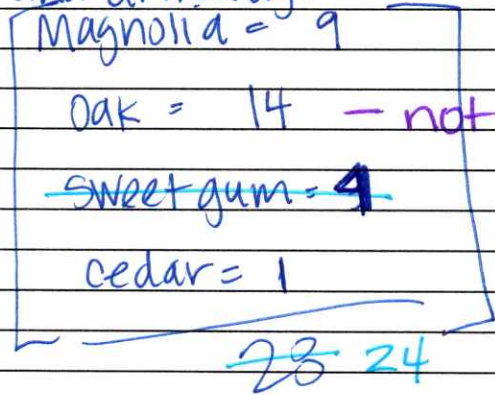 Magnolia = 9
oak = 14 - not
sweetgum = 4
cedar = 1
28 24